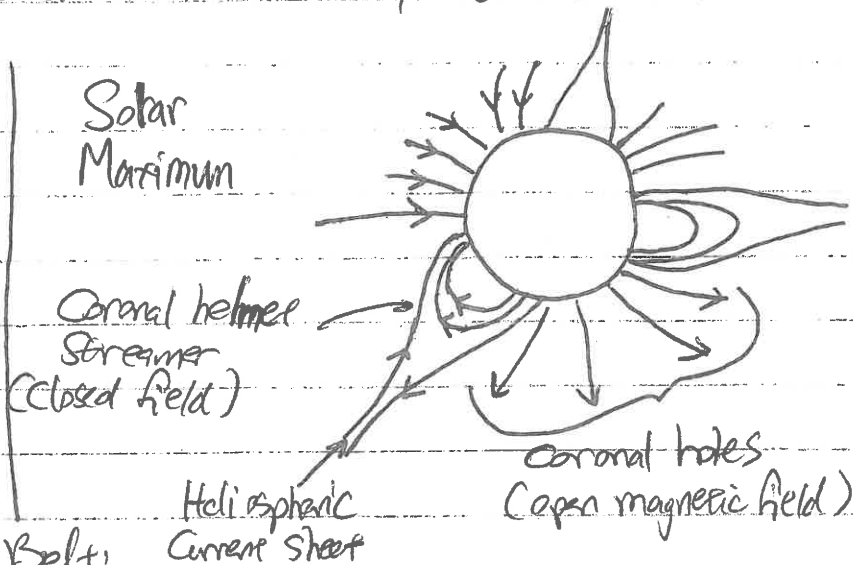 Solar
Maximum
Coronal helmet
Streamer
(Closed field)
Heliospheric
Current Sheet
Coronal holes
(open magnetic field)